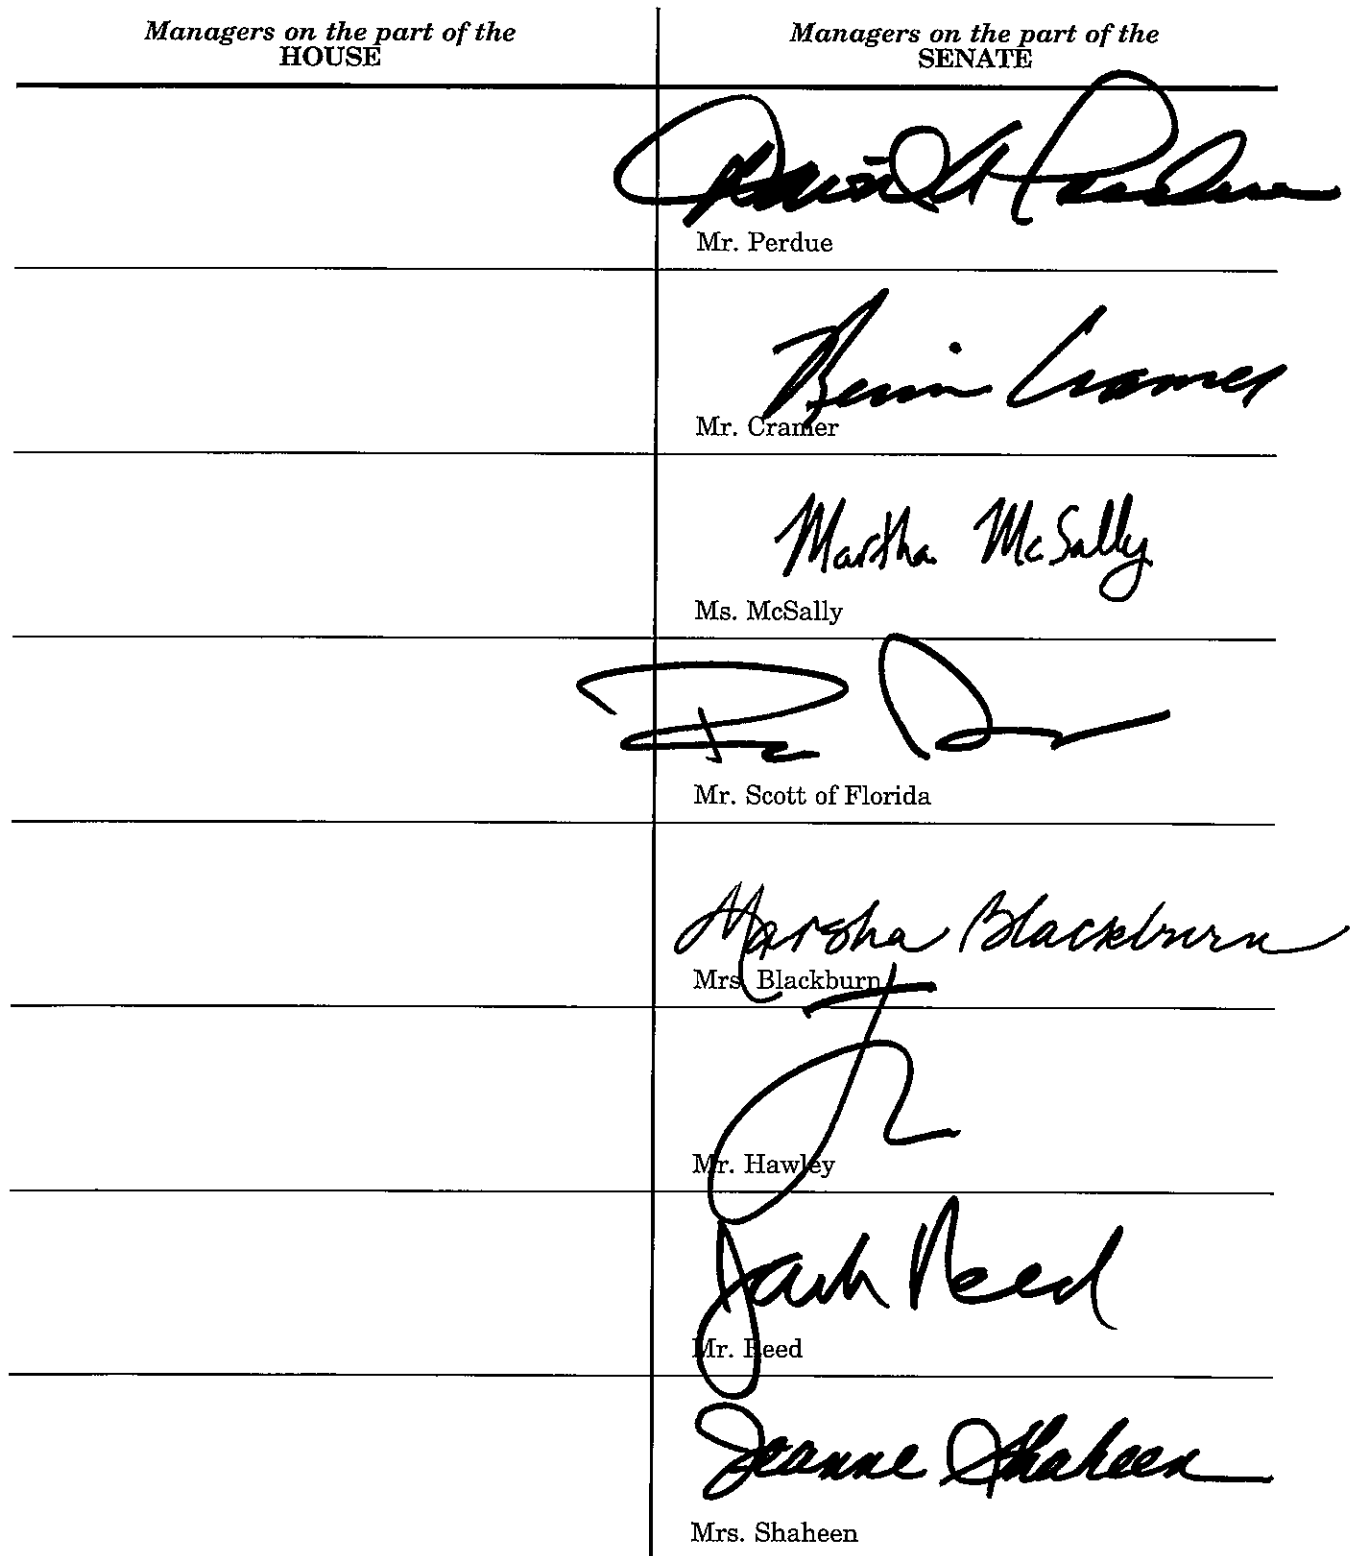 Managers on the part of the
HOUSE
Managers on the part of the
SENATE
David Perdue
Mr. Perdue
Kevin Cramer
Mr. Cramer
Martha McSally
Ms. McSally
Mr. Scott of Florida
Marsha Blackburn
Mrs. Blackburn
Mr. Hawley
Jack Reed
Mr. Reed
Jeanne Shaheen
Mrs. Shaheen